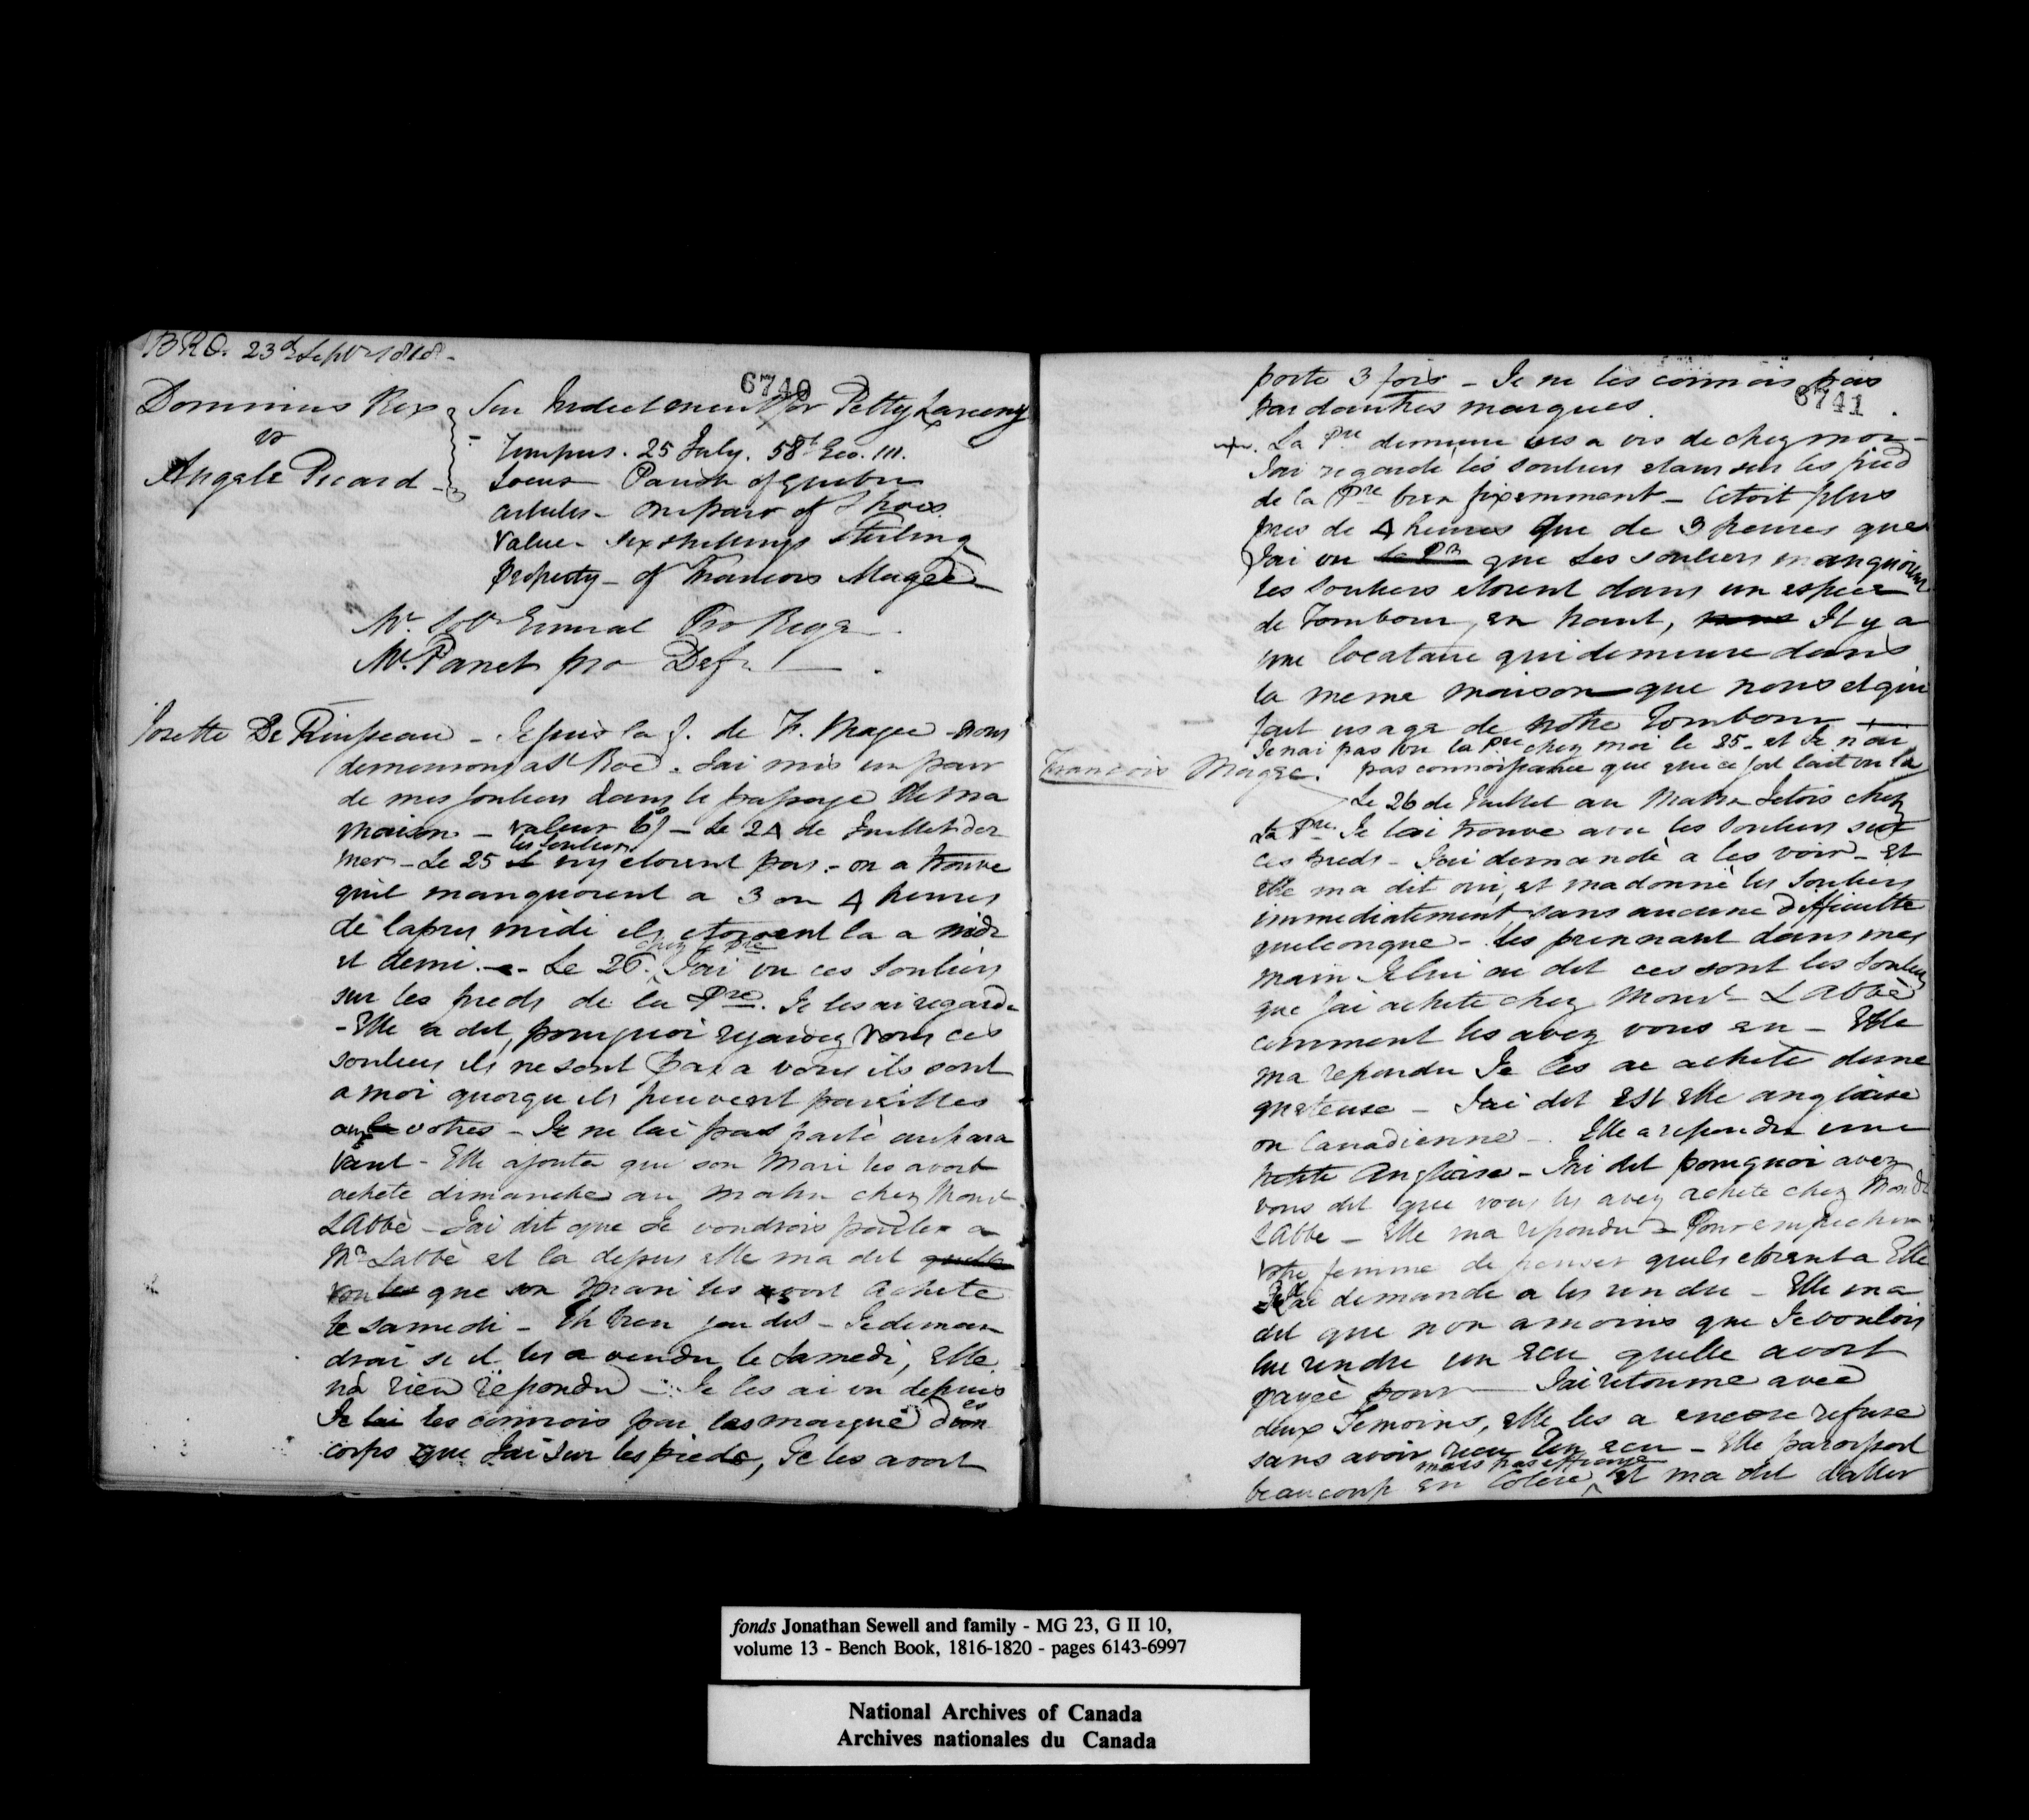 BRQ. 23d Septr 1818 -
6740
Dominus Rex
vs
Angele Picard -
Sur Indictment for Petty Larceny
Tempus. 25 July. 58th Geo. III.
Locus Parish of Quebec
articles - One pair of Shoes
Value - Six shillings Sterling
Property - of Francois Magee
Mr. Solr General Pro Rege -
Mr. Panet pro Deft
Josette De - Je suis la f. de F. Magee - nous
demeurons a St Roc. Jai mis un pair
de mes souliers dans le passage de ma
maison - valeur 6/ - Le 24 de Juillet der
les souliers
nier - Le 25 il ny etoient pas - on a trouve
quil manquoient a 3 ou 4 heures
de lapres midi ils etoient la a midi
chez la Pre
et demi. - Le 26. Jai vu ces souliers
sur les pieds de la Pre. Je les ai regarde
- Elle a dit, pourquoi regardez vous ces
souliers ils ne sont pas a vous ils sont
a moi quoiqu ils peuvent pareilles
aux votres - Je ne lai pas parlè aupara
vant - Elle ajouta que son Mari les avoit
achete dimanche au matin chez Monsr
LAbbè - Jai dit que Je voudrois parler a
Mr Labbè et la depus elle ma dit quelle
que son Mari les avoit achete
le samedi - Eh bien jai dit - Je deman
drai si il les a vendu le Samedi, Elle
na rien repondu - Je les ai vu depuis
Je lai les connois par les marque dun
es
corps que Jai sur les pieds, Je les avoit
6741
porte 3 fois - Je ne les connois pas
par dautres marques.
La Pre demeure vis a vis de chez moi -
Jai regarde les souliers etans sur les pied
de la Pre bien fixemment - Cetoit plus
pres de 4 heures que de 3 heures que
Jai vu la Pr que les souliers manquoient
les souliers etoient dans un espece
de Tombour, en haut, nous Il y a
une locataire qui demeure dans
la meme maison que nous et qui
fait usage de notre Tombour -
Je nai pas vu la Pre chez moi le 25 - et Je n'ai
pas connoissance que que ce soit lait vu la
Francois Magee.
Le 26 de Juillet au Matin Jetois chez
la Pre Je lai trouve avec les souliers sur
ces pieds - Jai demandè a les voir - et
elle ma dit oui, et ma donnè les souliers
immediatement sans aucune difficulte
quelconque - les prennant dans mes
main Je lui ai dit ces sont les souliers
que Jai achete chez Monsr LAbbè
comment les avez vous eu - Elle
ma repondu Je les ai achete dune
queteuse - Jai dit est elle angloise
ou Canadienne - Elle a repondu une
petite Angloise - Jai dit pourquoi avez
vous dit que vous les avez achete chez Monsr
LAbbe - Elle ma repondu - Pour empecher
votre femme de penser quils etoient a Elle
Jai demande a les rendre - Elle ma
dit que non amoins que Je voulois
lui rendre un ecu quelle avoit
payèe pour - Jai retourne avec
deux Temoins, elle les a encore refuse
sans avoir recu un ecu - Elle paroissoit
mais pas effrayè
beaucoup en Colere, et ma dit daller
fonds Jonathan Sewell and family - MG 23, G II 10,
volume 13 - Bench Book, 1816-1820 - pages 6143-6997
National Archives of Canada
Archives nationales du Canada